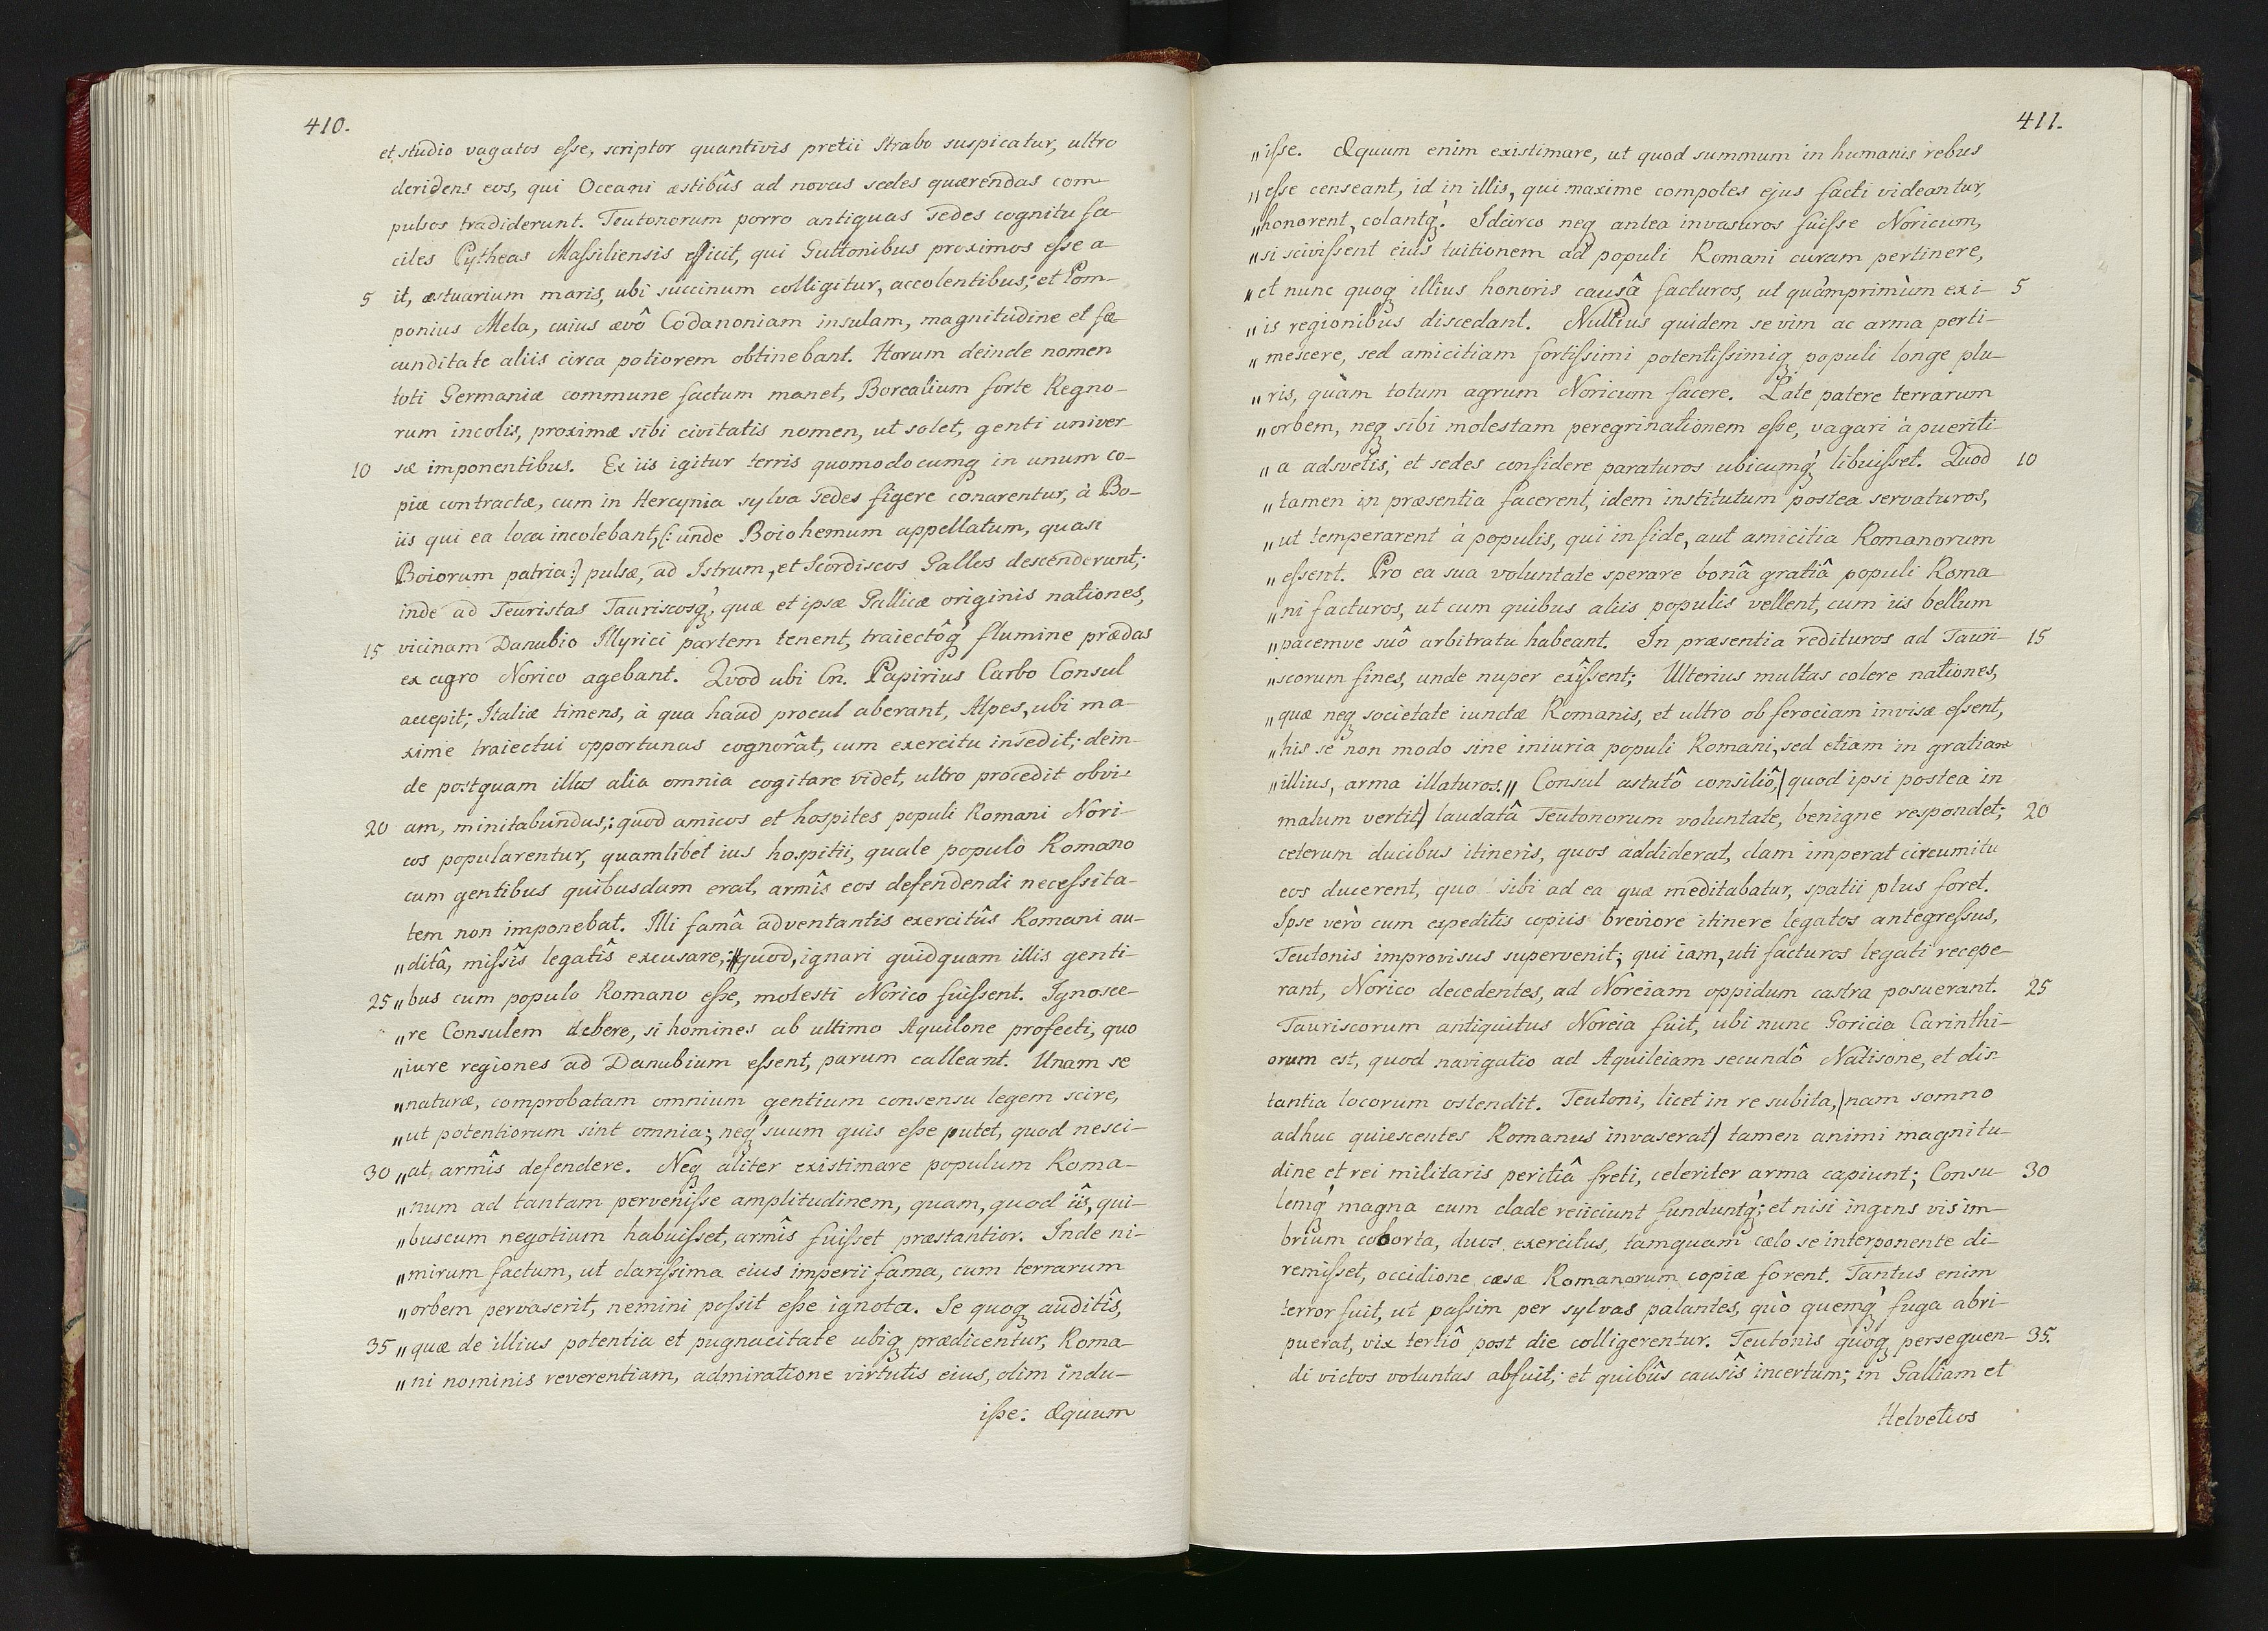 410.
et studio vagatos eſse, scriptor quantivis pretii Strabo suspicatur, ultro
deridens eos, qui Oceani æstibûs ad novas sedes quærendas com-
pulsos tradiderunt. Teutonorum porro antiquas sedes cognitu fa-
ciles Pytheas Maſsiliensis efficit, qui Guttonibus proximos eſse a
5 it, æstuarium maris, ubi succinum colligitur, accolentibus; et Pom-
ponius Mela, cuius ævô Codanoniam insulam, magnitudine et fæ-
cunditate aliis circa potiorem obtinebant. Horum deinde nomen
toti Germaniæ commune factum manet, Borealium forte Regno-
rum incolis, proximæ sibi civitatis nomen, ut solet, genti univer-
10 sæ imponentibus. Ex iis igitur terris quomodocumq́ in unum co-
piæ contractæ, cum in Hercynia sylva sedes figere conarentur, à Bo-
iis qui ea loca incolebant, [: unde Boiohemum appellatum, quasi
Boiorum patria :] pulsæ, ad Istrum, et Scordiscos Gallos descenderunt;
inde ad Teuristas Tauriscosq́, quæ et ipsæ Gallicæ originis nationes,
15 vicinam Danubio Illyrici partem tenent, traiectôq́ flumine prædas
ex agro Norico agebant. Quod ubi Cn. Papirius Carbo Consul
accepit; Italiæ timens, à qua haud procul aberant, Alpes, ubi ma-
xime traiectui opportunas cognorât, cum exercitu insedit; dein-
de postquam illos alia omnia cogitare videt, ultro procedit obvi-
20 am, minitabundus,: quod amicos et hospites populi Romani Nori-
cos popularentur, quamlibet ius hospitii, quale populo Romano
cum gentibus quibusdam erat, armîs eos defendendi neceſsita-
tem non imponebat. Illi famâ adventantis exercitûs Romani au-
„ditâ, miſsîs legatîs excusare,: quod, ignari quidquam illis genti-
25 „bus cum populo Romano eſse, molesti Norico fuiſsent. Ignosce-
„re Consulem debere, si homines ab ultimo Aquilone profecti, quo
„iure regiones ad Danubium eſsent, parum calleant. Unam se
„naturæ, comprobatam omnium gentium consensu legem scire,
„ut potentiorum sint omnia; neq́ suum quis eſse putet, quod nesci-
30 „at armîs defendere. Neq́ aliter existimare populum Roma-
„num ad tantam perveniſse amplitudinem, quam, quod iîs, qui-
„buscum negotium habuiſset, armîs fuiſset præstantior. Inde ni-
„mirum factum, ut clariſsima eius imperii fama, cum terrarum
„orbem pervaserit, nemini poſsit eſse ignota. Se quoq́ auditîs,
35 „quæ de illius potentia et pugnacitate ubiq́ prædicentur, Roma-
„ni nominis reverentiam, admiratione virtutis eius, olim indu-
iſse. Æquum
411.
„iſse. Æquum enim existimare, ut quod summum in humanis rebus
„eſse censeant, id in illis, qui maxime compotes ejus facti videantur,
„honorent, colantq́. Idcirco neq́ antea invasuros fuiſse Noricum,
„si sciviſsent eius tuitionem ad populi Romani curam pertinere,
„et nunc quoq́ illius honoris causâ facturos, ut quàmprimùm exi- 5
„is regionibus discedant. Nullius quidem se vim ac arma perti-
„mescere, sed amicitiam fortiſsimi potentiſsimiq́ populi longe plu-
„ris, quàm totum agrum Noricum facere. Late patere terrarum
„orbem, neq́ sibi molestam peregrinationem eſse, vagari à pueriti-
„a adsvetis; et sedes considere paraturos ubicumq́ libuiſset. Quod 10
„tamen in præsentia facerent, idem institutum postea servaturos,
„ut temperarent à populis, qui in fide, aut amicitia Romanorum
„eſsent. Pro ea sua voluntate sperare bonâ gratiâ populi Roma-
„ni facturos, ut cum quibus aliis populis vellent, cum iis bellum
„pacemve suô arbitratu habeant. In præsentia redituros ad Tauri- 15
„scorum fines, unde nuper exîſsent; Ulterius multas colere nationes,
„quæ neq́ societate iunctæ Romanis, et ultro ob ferociam invisæ eſsent,
„his se non modo sine iniuria populi Romani, sed etiam in gratiam
„illius, arma illaturos.„ Consul astutô consiliô, (quod ipsi postea in
malum vertit) laudatâ Teutonorum voluntate, benigne respondet; 20
ceterum ducibus itineris, quos addiderat, clam imperat circumitu
eos ducerent, quo sibi ad ea quæ meditabatur, spatii plus foret.
Ipse verò cum expeditis copiis breviore itinere legatos antegreſsus,
Teutonis improvisus supervenit; qui iam, uti facturos legati recepe-
rant, Norico decedentes, ad Noreiam oppidum castra posuerant. 25
Tauriscorum antiquitus Noreia fuit, ubi nunc Goricia Carinthi-
orum est, quod navigatio ad Aquileiam secundô Natisone, et dis-
tantia locorum ostendit. Teutoni, licet in re subita, (nam somno
adhuc quiescentes Romanus invaserat) tamen animi magnitu-
dine et rei militaris peritiâ freti, celeriter arma capiunt; Consu- 30
lemq́ magna cum clade reiiciunt funduntq́; et nisi ingens vis im-
brium coborta, duos exercitus, tamquam cælo se interponente di-
remiſset, occidione cæsæ Romanorum copiæ forent. Tantus enim
terror fuit, ut paſsim per sylvas palantes, quò quemq́ fuga abri-
puerat, vix tertiô post die colligerentur. Teutonis quoq́ persequen- 35.
di victos voluntas abfuit; et quibûs causîs incertum; in Galliam et
Helvetios